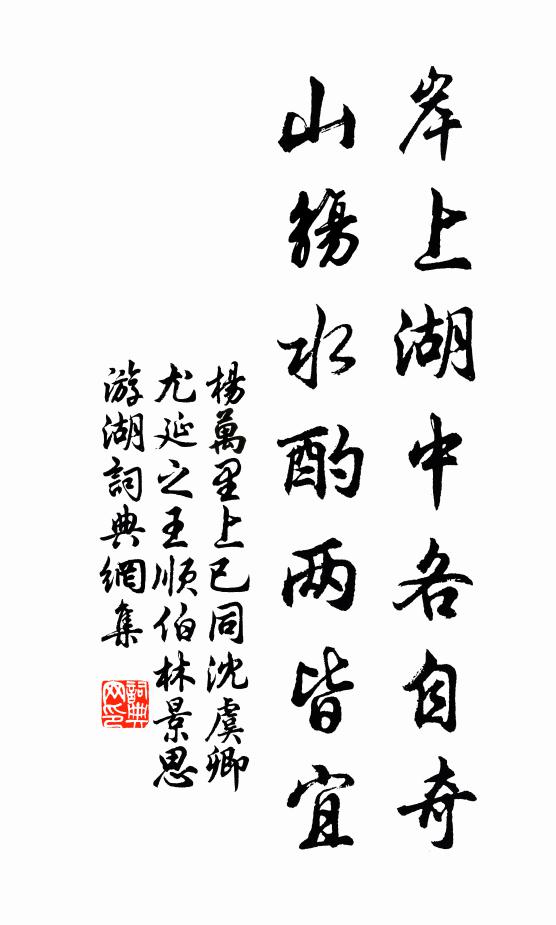 岸上湖中各自奇
山觴水酌两皆宜
楊萬里上巳同沈虞卿
尤延之王順伯林景思
游湖詞典網集
詞典網印